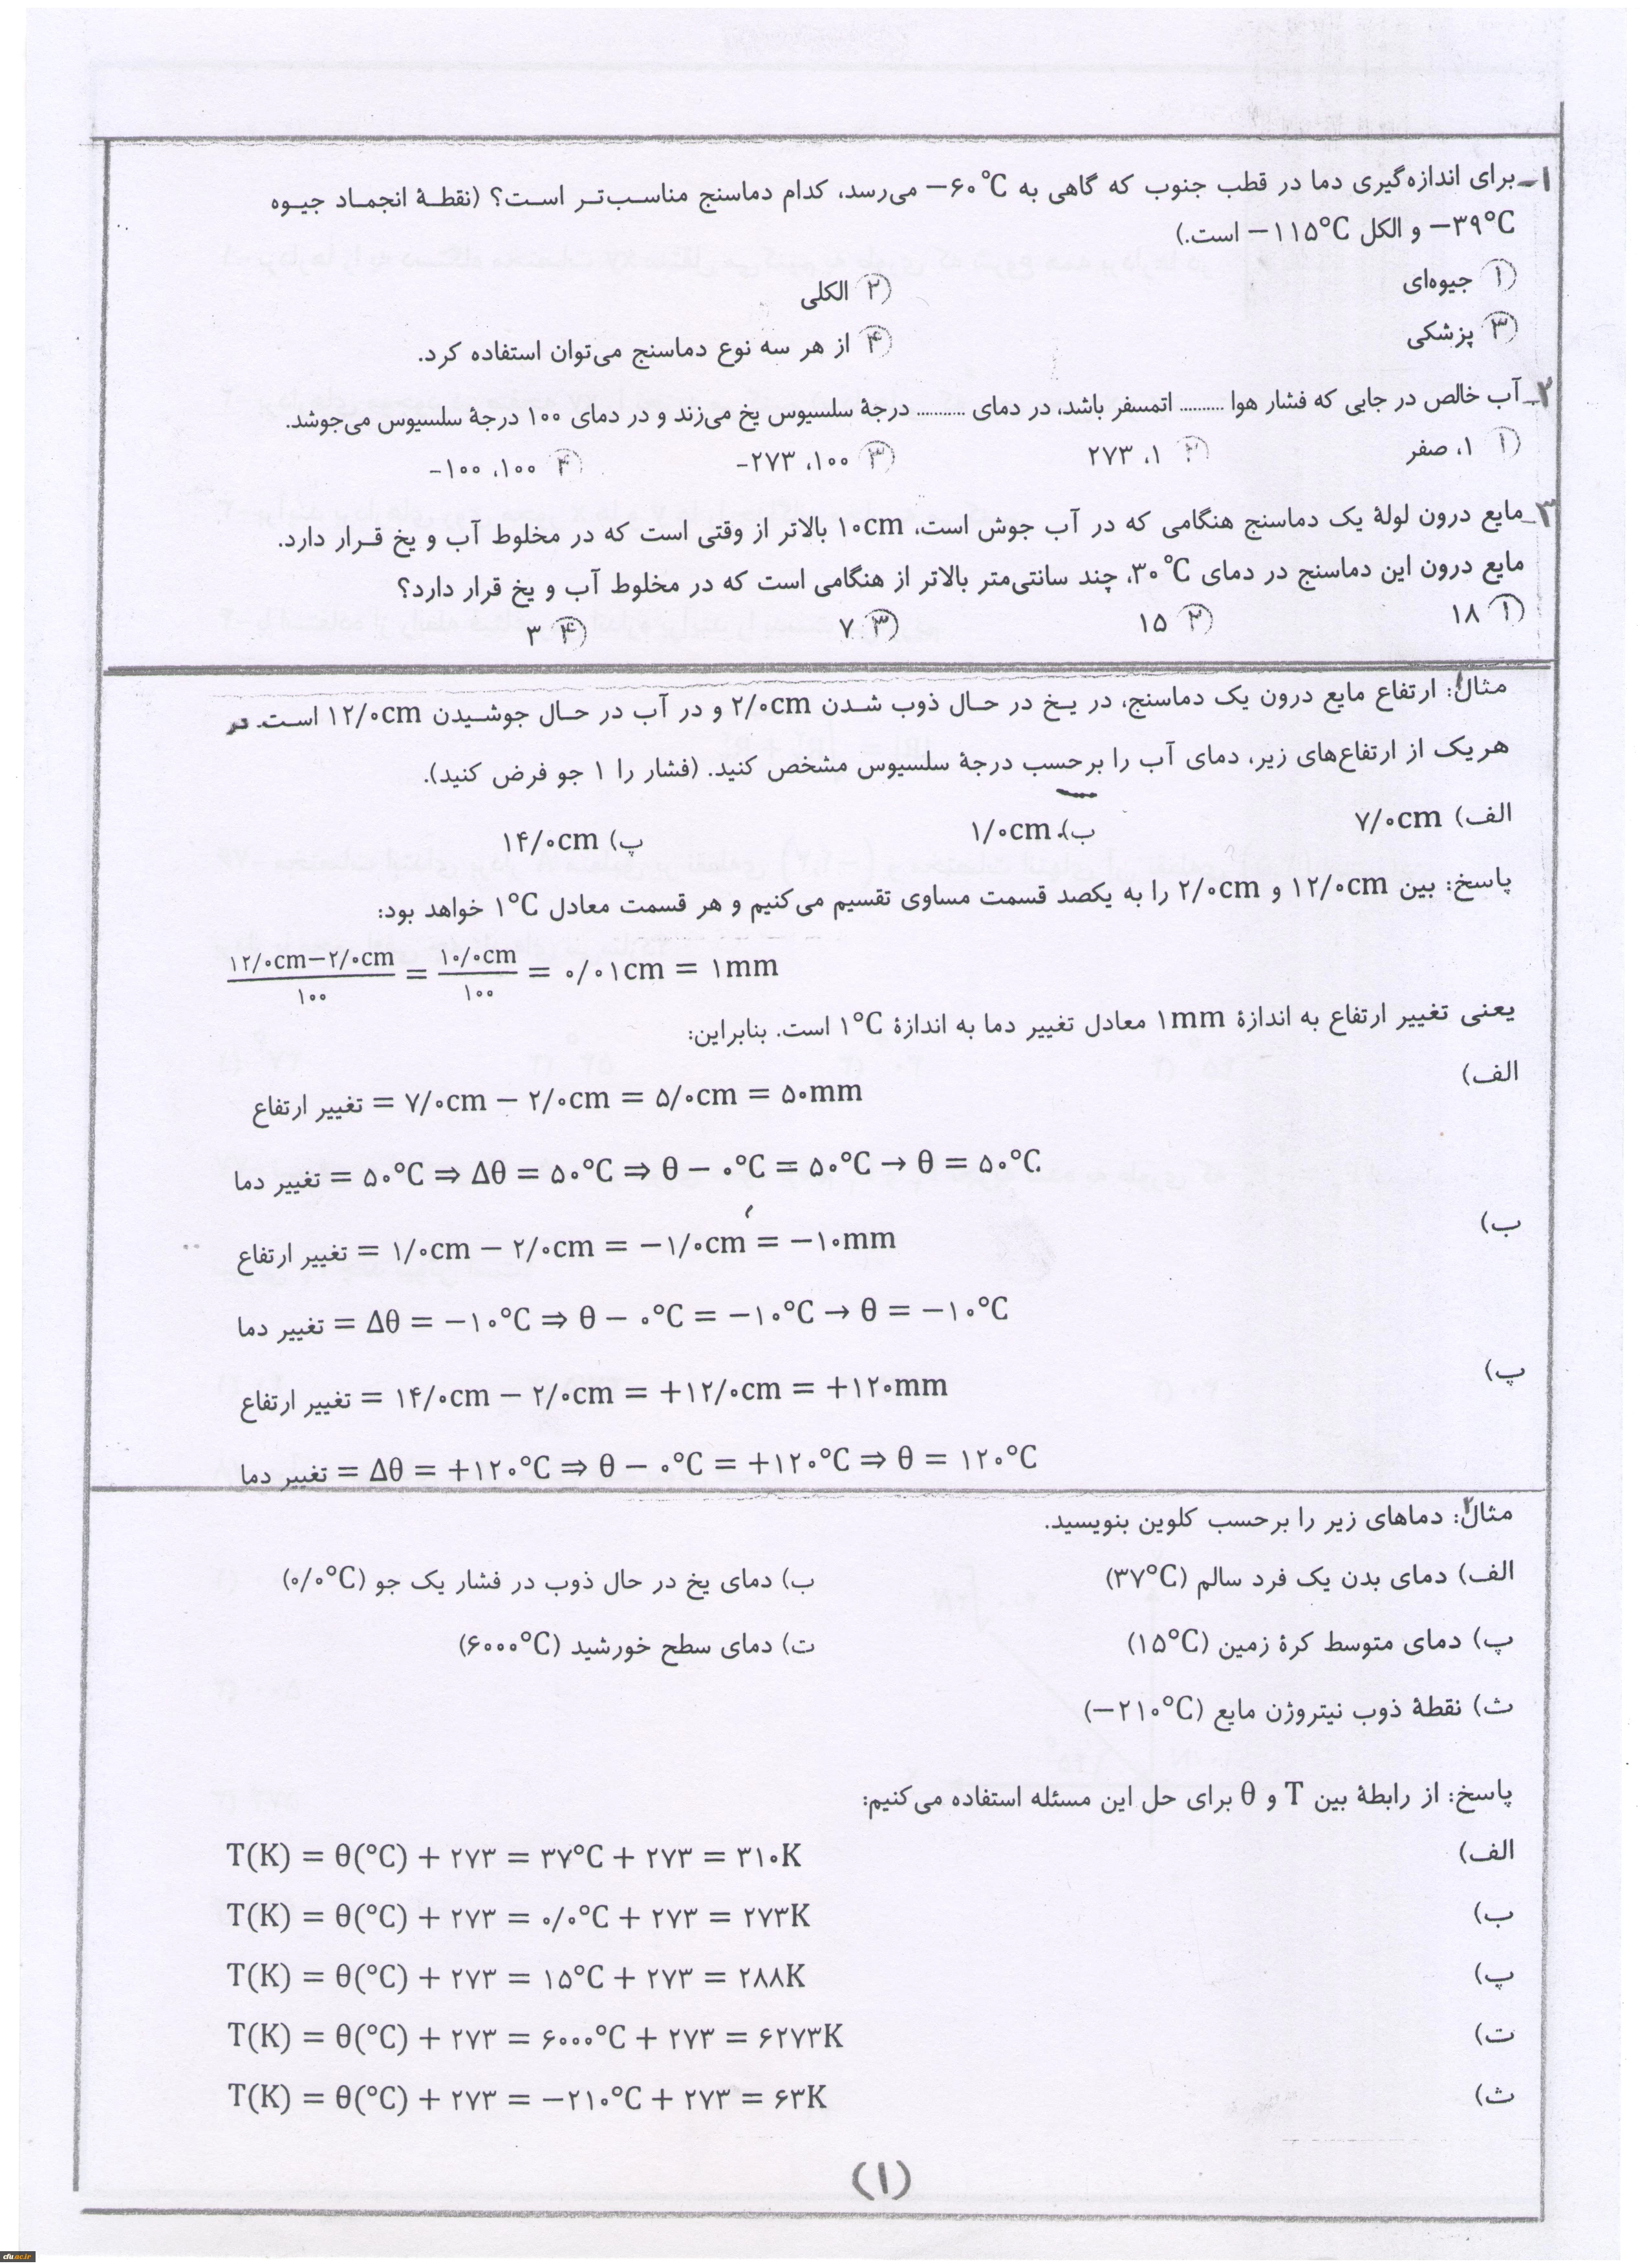 ۱ـ برای اندازه‌گیری دما در قطب جنوب که گاهی به ۶۰°C− می‌رسد، کدام دماسنج مناسب‌تر است؟ (نقطهٔ انجماد جیوه
۳۹°C− و الکل ۱۱۵°C− است.)
۱ جیوه‌ای ۲ الکلی
۳ پزشکی ۴ از هر سه نوع دماسنج می‌توان استفاده کرد.
۲ـ آب خالص در جایی که فشار هوا .......... اتمسفر باشد، در دمای .......... درجهٔ سلسیوس یخ می‌زند و در دمای ۱۰۰ درجهٔ سلسیوس می‌جوشد.
۱ ۱، صفر ۲ ۱، ۲۷۳ ۳ ۱۰۰، ۲۷۳− ۴ ۱۰۰، ۱۰۰−
۳ـ مایع درون لولهٔ یک دماسنج هنگامی که در آب جوش است، ۱۰cm بالاتر از وقتی است که در مخلوط آب و یخ قرار دارد.
مایع درون این دماسنج در دمای ۳۰°C، چند سانتی‌متر بالاتر از هنگامی است که در مخلوط آب و یخ قرار دارد؟
۱ ۱۸ ۲ ۱۵ ۳ ۷ ۴ ۳
مثال۱: ارتفاع مایع درون یک دماسنج، در یخ در حال ذوب شدن ۲/۰cm و در آب در حال جوشیدن ۱۲/۰cm است. در
هریک از ارتفاع‌های زیر، دمای آب را برحسب درجهٔ سلسیوس مشخص کنید. (فشار را ۱ جو فرض کنید).
الف) ۷/۰cm ب) ۱/۰cm پ) ۱۴/۰cm
پاسخ: بین ۱۲/۰cm و ۲/۰cm را به یکصد قسمت مساوی تقسیم می‌کنیم و هر قسمت معادل ۱°C خواهد بود:
(۱۲/۰cm−۲/۰cm)/۱۰۰ = ۱۰/۰cm/۱۰۰ = ۰/۰۱cm = ۱mm
یعنی تغییر ارتفاع به اندازهٔ ۱mm معادل تغییر دما به اندازهٔ ۱°C است. بنابراین:
الف)
تغییر ارتفاع = ۷/۰cm − ۲/۰cm = ۵/۰cm = ۵۰mm
تغییر دما = ۵۰°C ⇒ Δθ = ۵۰°C ⇒ θ − ۰°C = ۵۰°C → θ = ۵۰°C
ب)
تغییر ارتفاع = ۱/۰cm − ۲/۰cm = −۱/۰cm = −۱۰mm
تغییر دما = Δθ = −۱۰°C ⇒ θ − ۰°C = −۱۰°C → θ = −۱۰°C
پ)
تغییر ارتفاع = ۱۴/۰cm − ۲/۰cm = +۱۲/۰cm = +۱۲۰mm
تغییر دما = Δθ = +۱۲۰°C ⇒ θ − ۰°C = +۱۲۰°C ⇒ θ = ۱۲۰°C
مثال۲: دماهای زیر را برحسب کلوین بنویسید.
الف) دمای بدن یک فرد سالم (۳۷°C) ب) دمای یخ در حال ذوب در فشار یک جو (۰/۰°C)
پ) دمای متوسط کرهٔ زمین (۱۵°C) ت) دمای سطح خورشید (۶۰۰۰°C)
ث) نقطهٔ ذوب نیتروژن مایع (−۲۱۰°C)
پاسخ: از رابطهٔ بین T و θ برای حل این مسئله استفاده می‌کنیم:
الف) T(K) = θ(°C) + ۲۷۳ = ۳۷°C + ۲۷۳ = ۳۱۰K
ب) T(K) = θ(°C) + ۲۷۳ = ۰/۰°C + ۲۷۳ = ۲۷۳K
پ) T(K) = θ(°C) + ۲۷۳ = ۱۵°C + ۲۷۳ = ۲۸۸K
ت) T(K) = θ(°C) + ۲۷۳ = ۶۰۰۰°C + ۲۷۳ = ۶۲۷۳K
ث) T(K) = θ(°C) + ۲۷۳ = −۲۱۰°C + ۲۷۳ = ۶۳K
(۱)
cfu.ac.ir